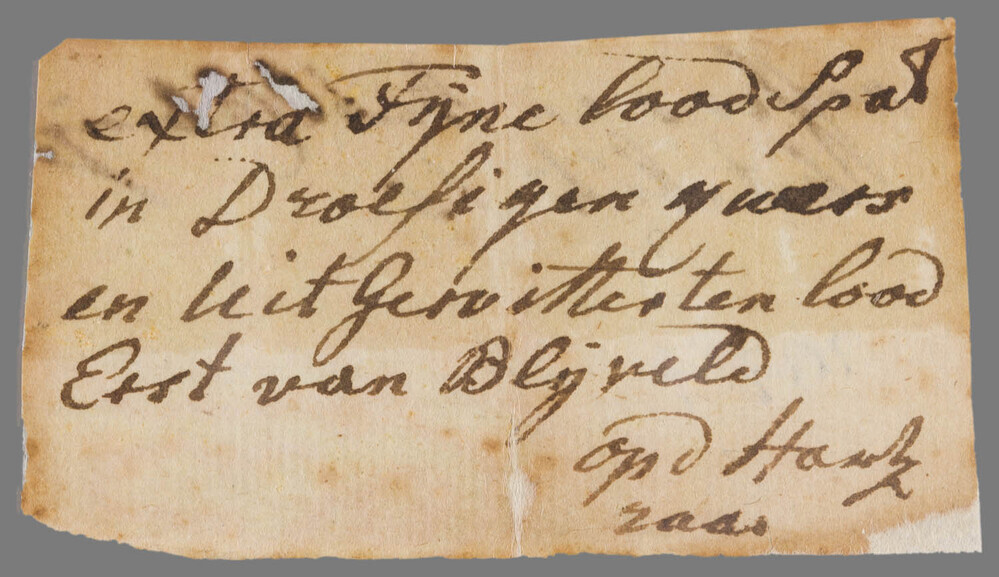 extra Fÿne lood Spat
in Droesigen quars
en Uit Gewitterten lood
Erst van Blÿveld
opd Hartz
raar